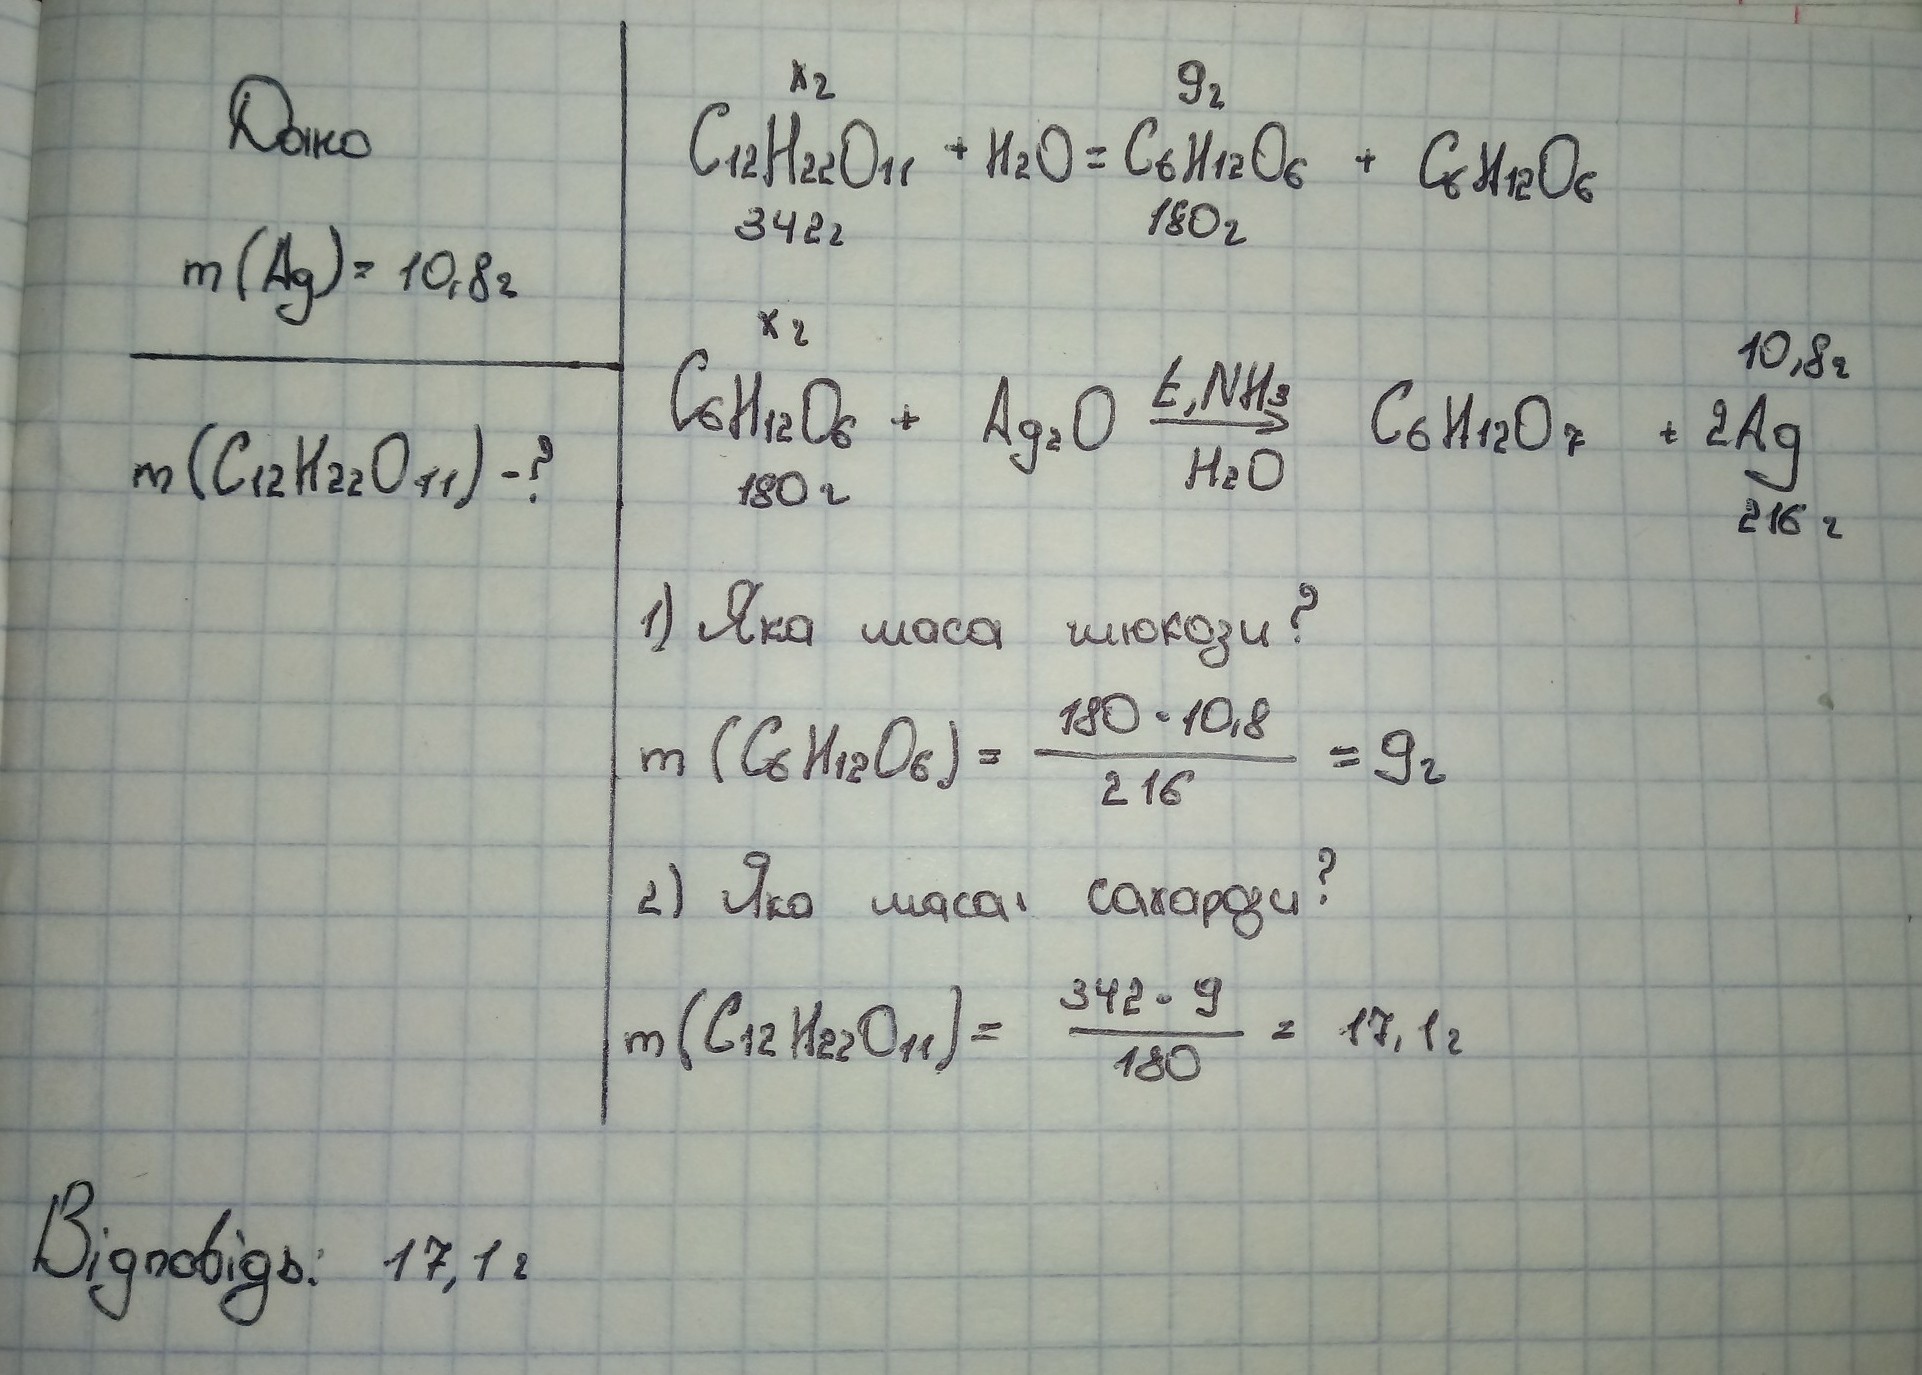 Дано
m(Ag) = 10,8г
m(C₁₂H₂₂O₁₁) - ?
xг 9г
C₁₂H₂₂O₁₁ + H₂O = C₆H₁₂O₆ + C₆H₁₂O₆
342г 180г
xг 10,8г
C₆H₁₂O₆ + Ag₂O t, NH₃ → H₂O C₆H₁₂O₇ + 2Ag
180г 216г
1) Яка маса глюкози?
m(C₆H₁₂O₆) = 180 · 10,8 / 216 = 9г
2) Яка маса сахарози?
m(C₁₂H₂₂O₁₁) = 342 · 9 / 180 = 17,1г
Відповідь: 17,1г